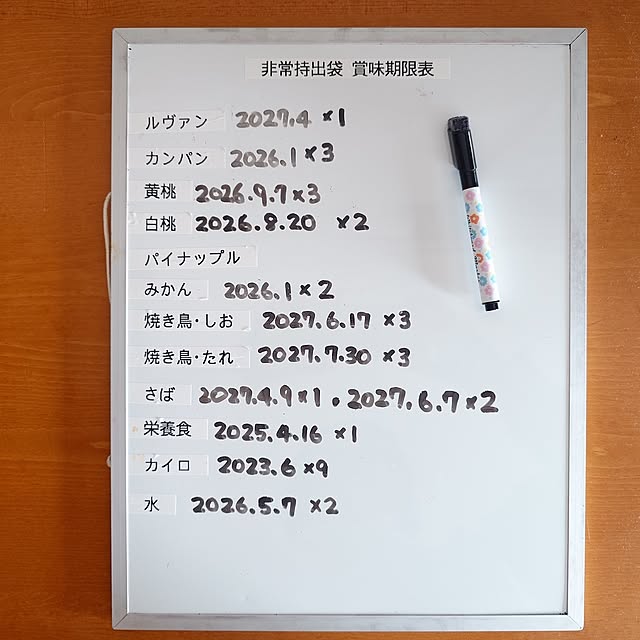 非常持出袋 賞味期限表
ルヴァン 2027.4 ×1
カンパン 2026.1 ×3
黄桃 2026.9.7 ×3
白桃 2026.8.20 ×2
パイナップル
みかん 2026.1 ×2
焼き鳥・しお 2027.6.17 ×3
焼き鳥・たれ 2027.7.30 ×3
さば 2027.4.9 ×1 . 2027.6.7 ×2
栄養食 2025.4.16 ×1
カイロ 2023.6 ×9
水 2026.5.7 ×2